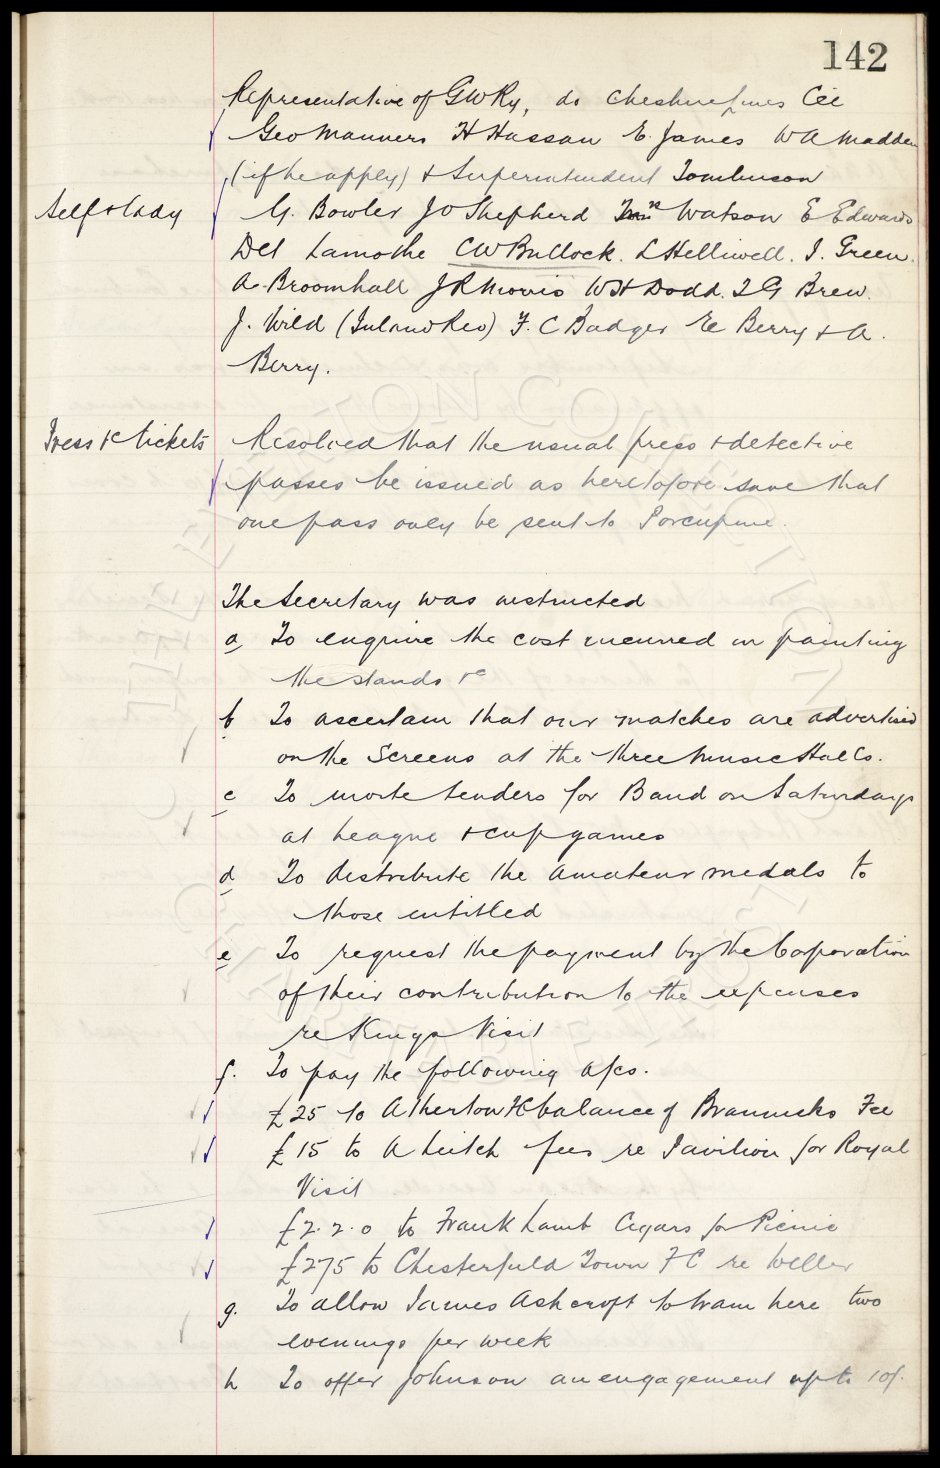 142
Representative of GWRy, do Cheshire Lines Cee
Geo Manners H Hassan E. James W A Madden
(if he apply) & Superintendent Tomlinson
Self & Lady G. Bowler J O Shepherd Watson E Edwards
Det Lamothe C W Bullock. L Helliwell. J. Green.
A. Broomhall J R Morris W H Dodd. I G Brew.
J. Wild (Inland Rev) F. C Badger E Berry & A.
Berry.
Press &c tickets Resolved that the usual press & detective
passes be issued as heretofore save that
one pass only be sent to Porcupine.
The Secretary was instructed
a, To enquire the cost incurred in painting
the stands &c
b To ascertain that our matches are advertised
on the Screens at the three Music Halls.
c To invite tenders for Band on Saturdays
at League & cup games
d To distribute the Amateur medals to
those entitled
e To request the payment by the Corporation
of their contribution to the expenses
re Kings Visit
f. To pay the following a/cs.
£25 to Atherton FC balance of Brannicks Fee
£15 to A Leitch fees re Pavilion for Royal
Visit
£2.2.0 to Frank Lamb Cigars for Picnic
£275 to Chesterfield Town F C re Weller
g. To allow James Ashcroft to train here two
evenings per week
h To offer Johnson an engagement up to 10/.